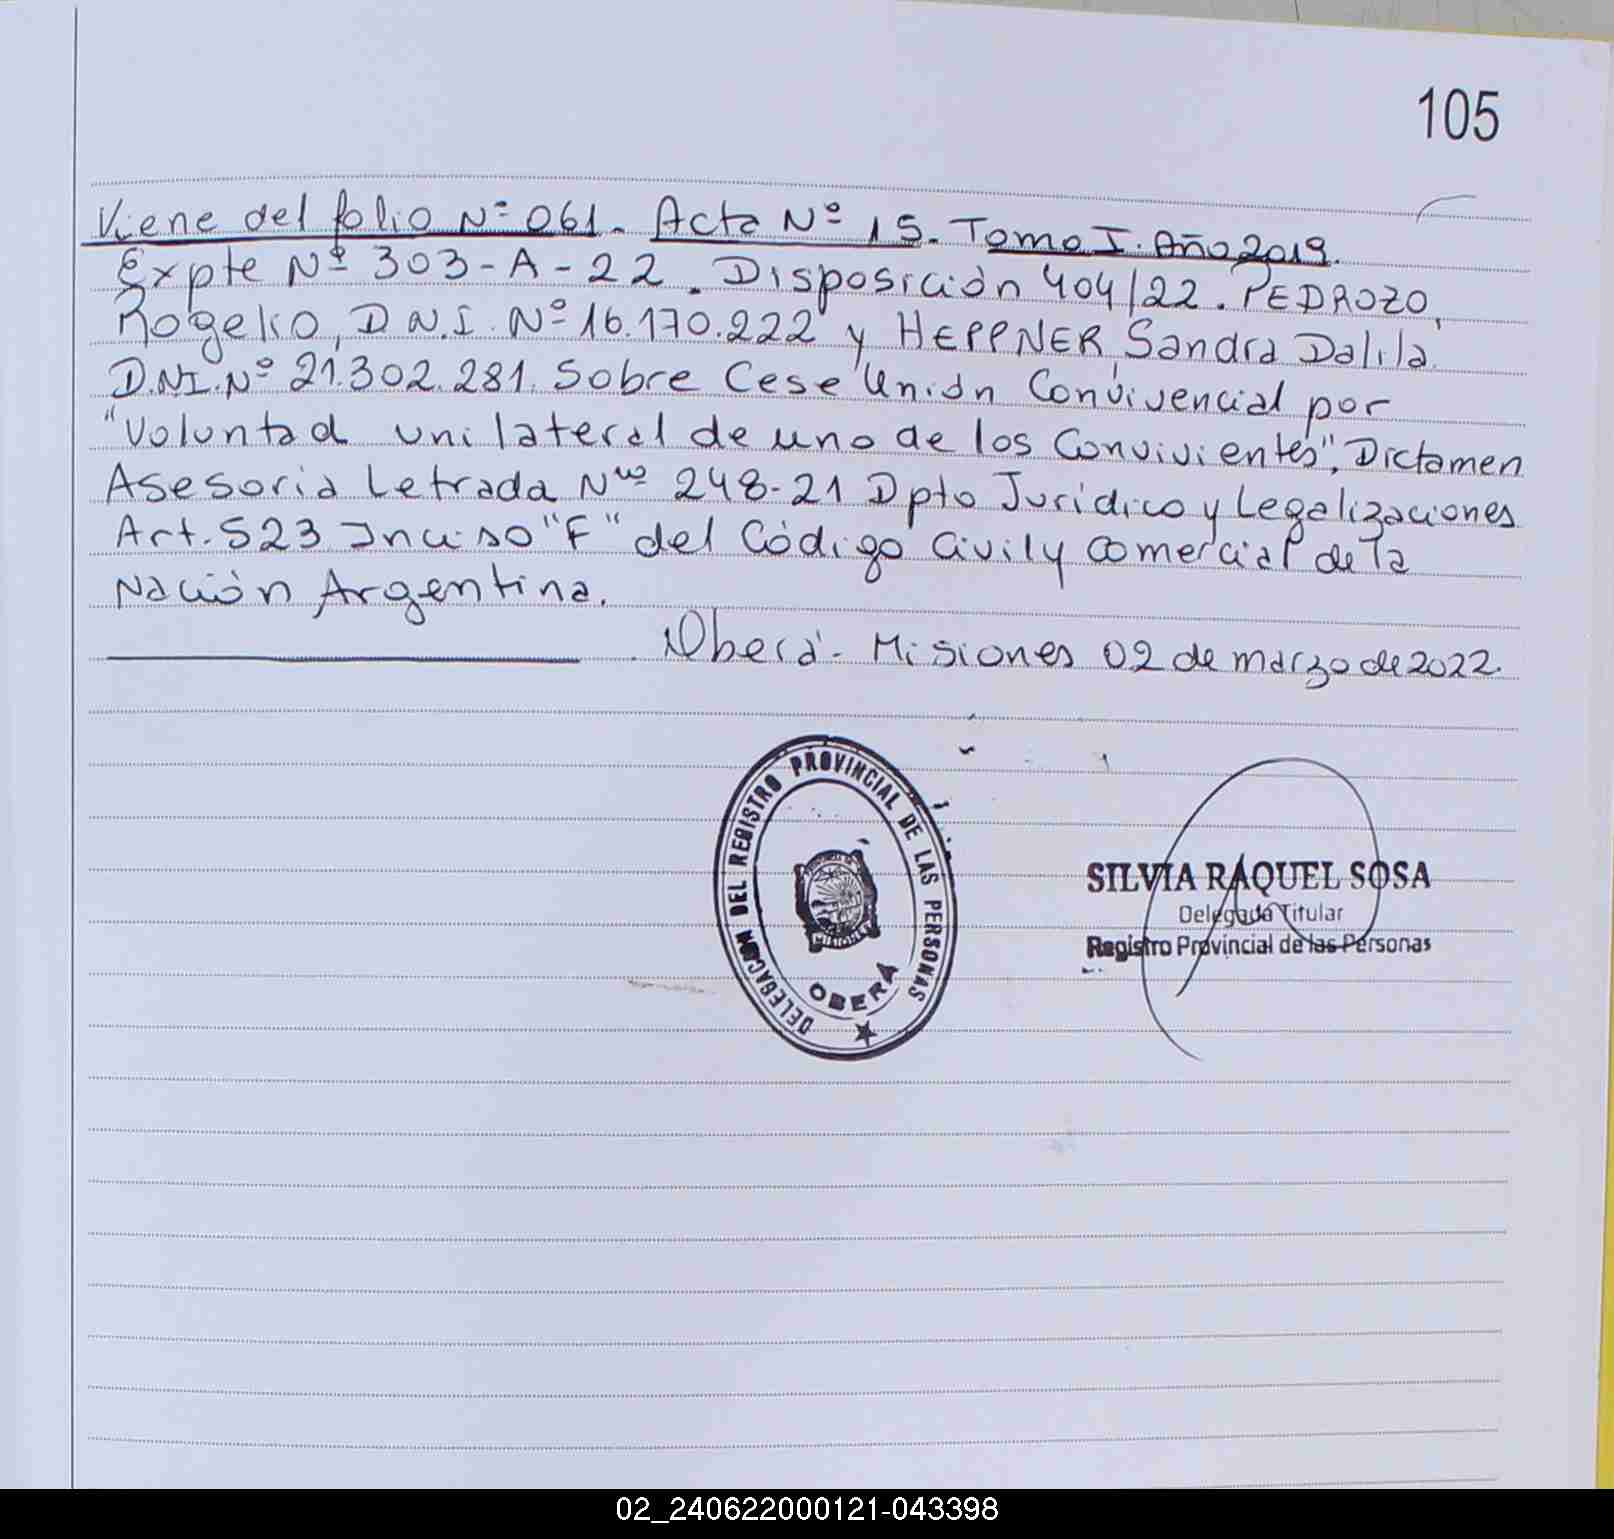 105
Viene del folio Nº 061. Acta Nº 15. Tomo I. Año 2019.
Expte Nº 303-A-22. Disposición 404/22. PEDROZO,
Rogelio, D.N.I. Nº 16.170.222 y HEPPNER, Sandra Dalila.
D.N.I. Nº 21.302.281. Sobre Cese Unión Convivencial por
"Voluntad unilateral de uno de los Convivientes", Dictamen
Asesoria Letrada Nro 248-21 Dpto Jurídico y Legalizaciones
Art. 523 Inciso "F" del Código Civil y Comercial de la
Nación Argentina.
Oberá - Misiones 02 de marzo de 2022.
DELEGACION DEL REGISTRO PROVINCIAL DE LAS PERSONAS
OBERA
SILVIA RAQUEL SOSA
Delegada Titular
Registro Provincial de las Personas
02_240622000121-043398